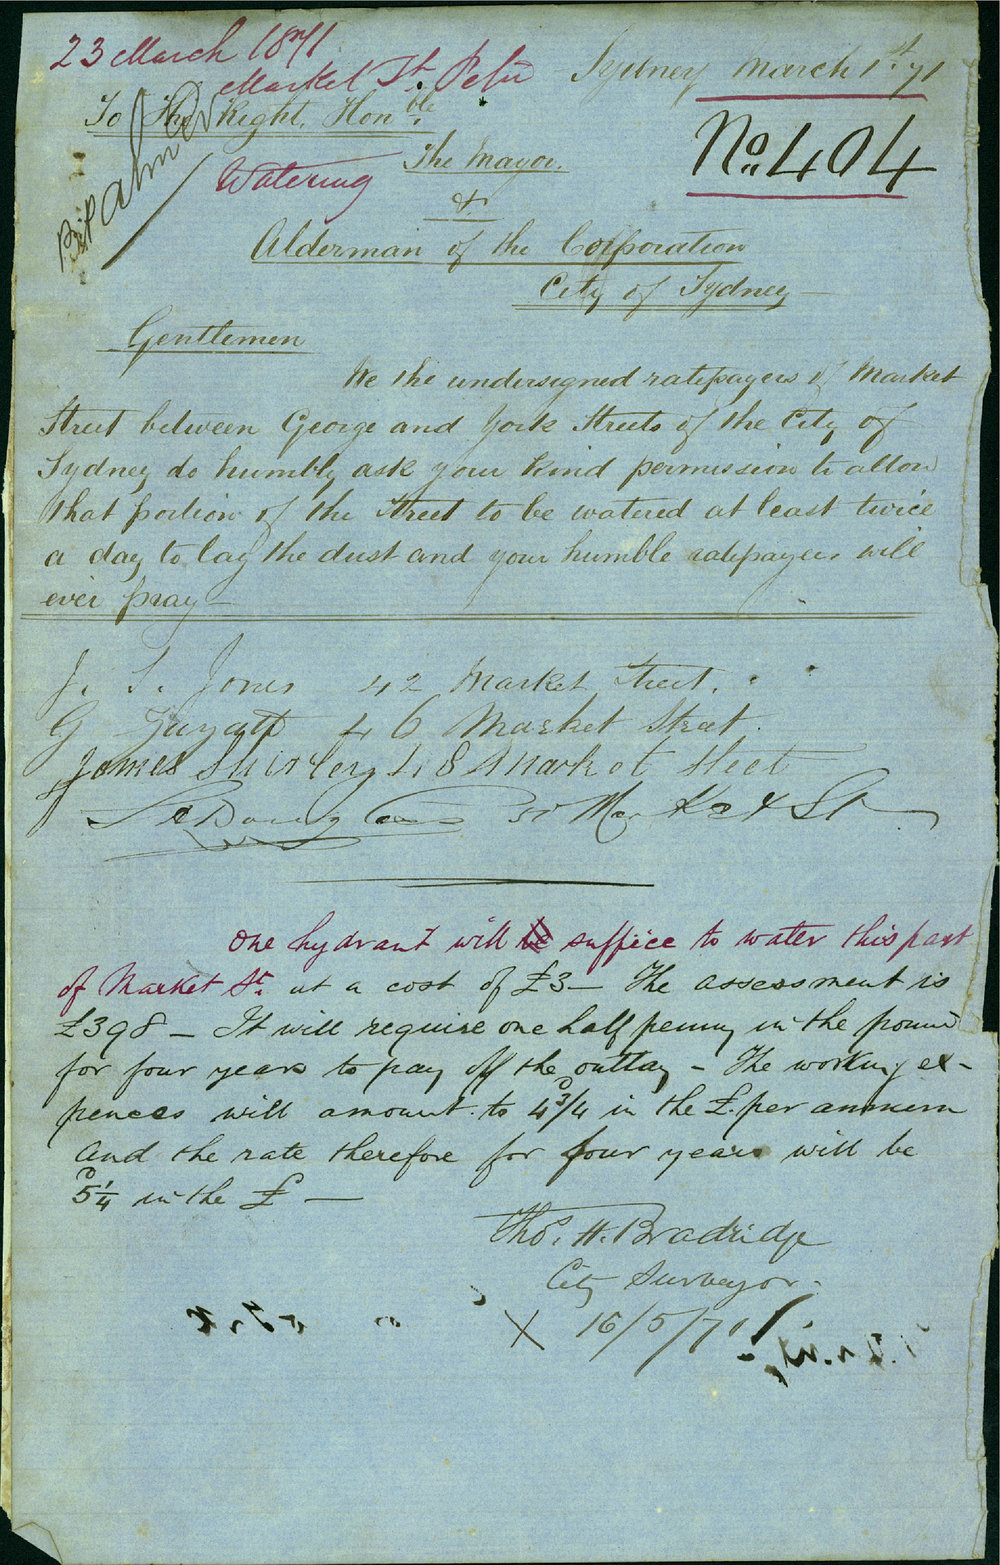 23 March 1871
Market St. Petn
Sydney March 1st 71
To The Right. Honble.
No. 404
Watering
The Mayor.
&
Alderman of the Corporation
City of Sydney
Gentlemen
We the undersigned ratepayers of Market
Street between George and York Streets of the City of
Sydney do humbly ask your kind permission to allow
that portion of the Street to be watered at least twice
a day to lay the dust and your humble ratepayers will
ever pray
J. S. Jones 42 Market Street.
G 46 Market Street.
James Shirley 48 Market Street
Market St
One hydrant will suffice to water this part
of Market St. at a cost of £3 — The assessment is
£398 — It will require one half penny in the pound
for four years to pay off the outlay — The working ex-
pences will amount to 4¾D in the £. per annum
and the rate therefore for four years will be
5¼D in the £ —
Thos. H. Bradridge
City Surveyor.
X 16/5/71